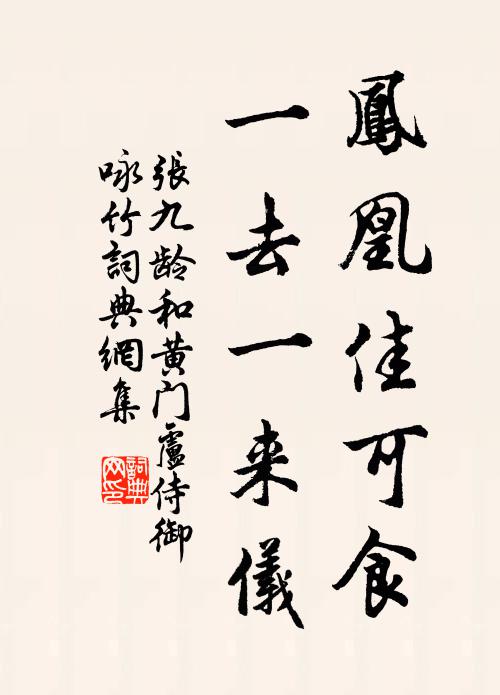 鳳凰佳可食
一去一来儀
張九龄和黄門盧侍御
咏竹詞典網集
詞典网印